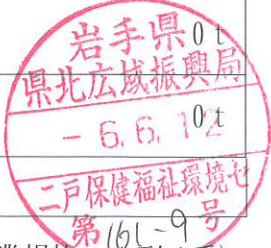 岩手県
0t
県北広域振興局
- 6. 6. 12
0t
二戸保健福祉環境セ
第161-9号